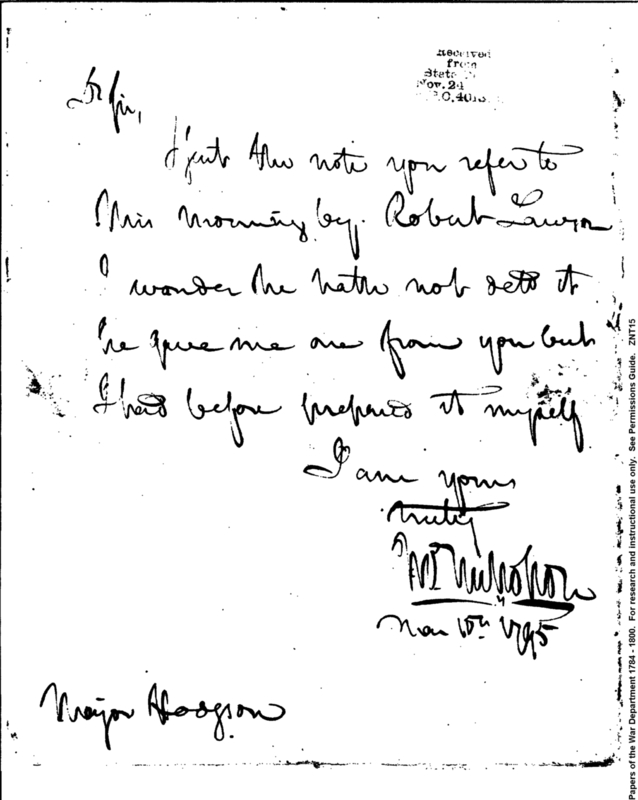 Received
from
State
Nov. 24
Dr Sir,
I sent the note you refer to
this morning by Robert Lawson
I wonder he hath not detd it
he gave me one from you but
I had before prepared it myself
I am yours
truly
Wm Nicholson
Nov 10th 1795
Major Hodgson
Papers of the War Department 1784 - 1800. For research and instructional use only. See Permissions Guide. ZNT15